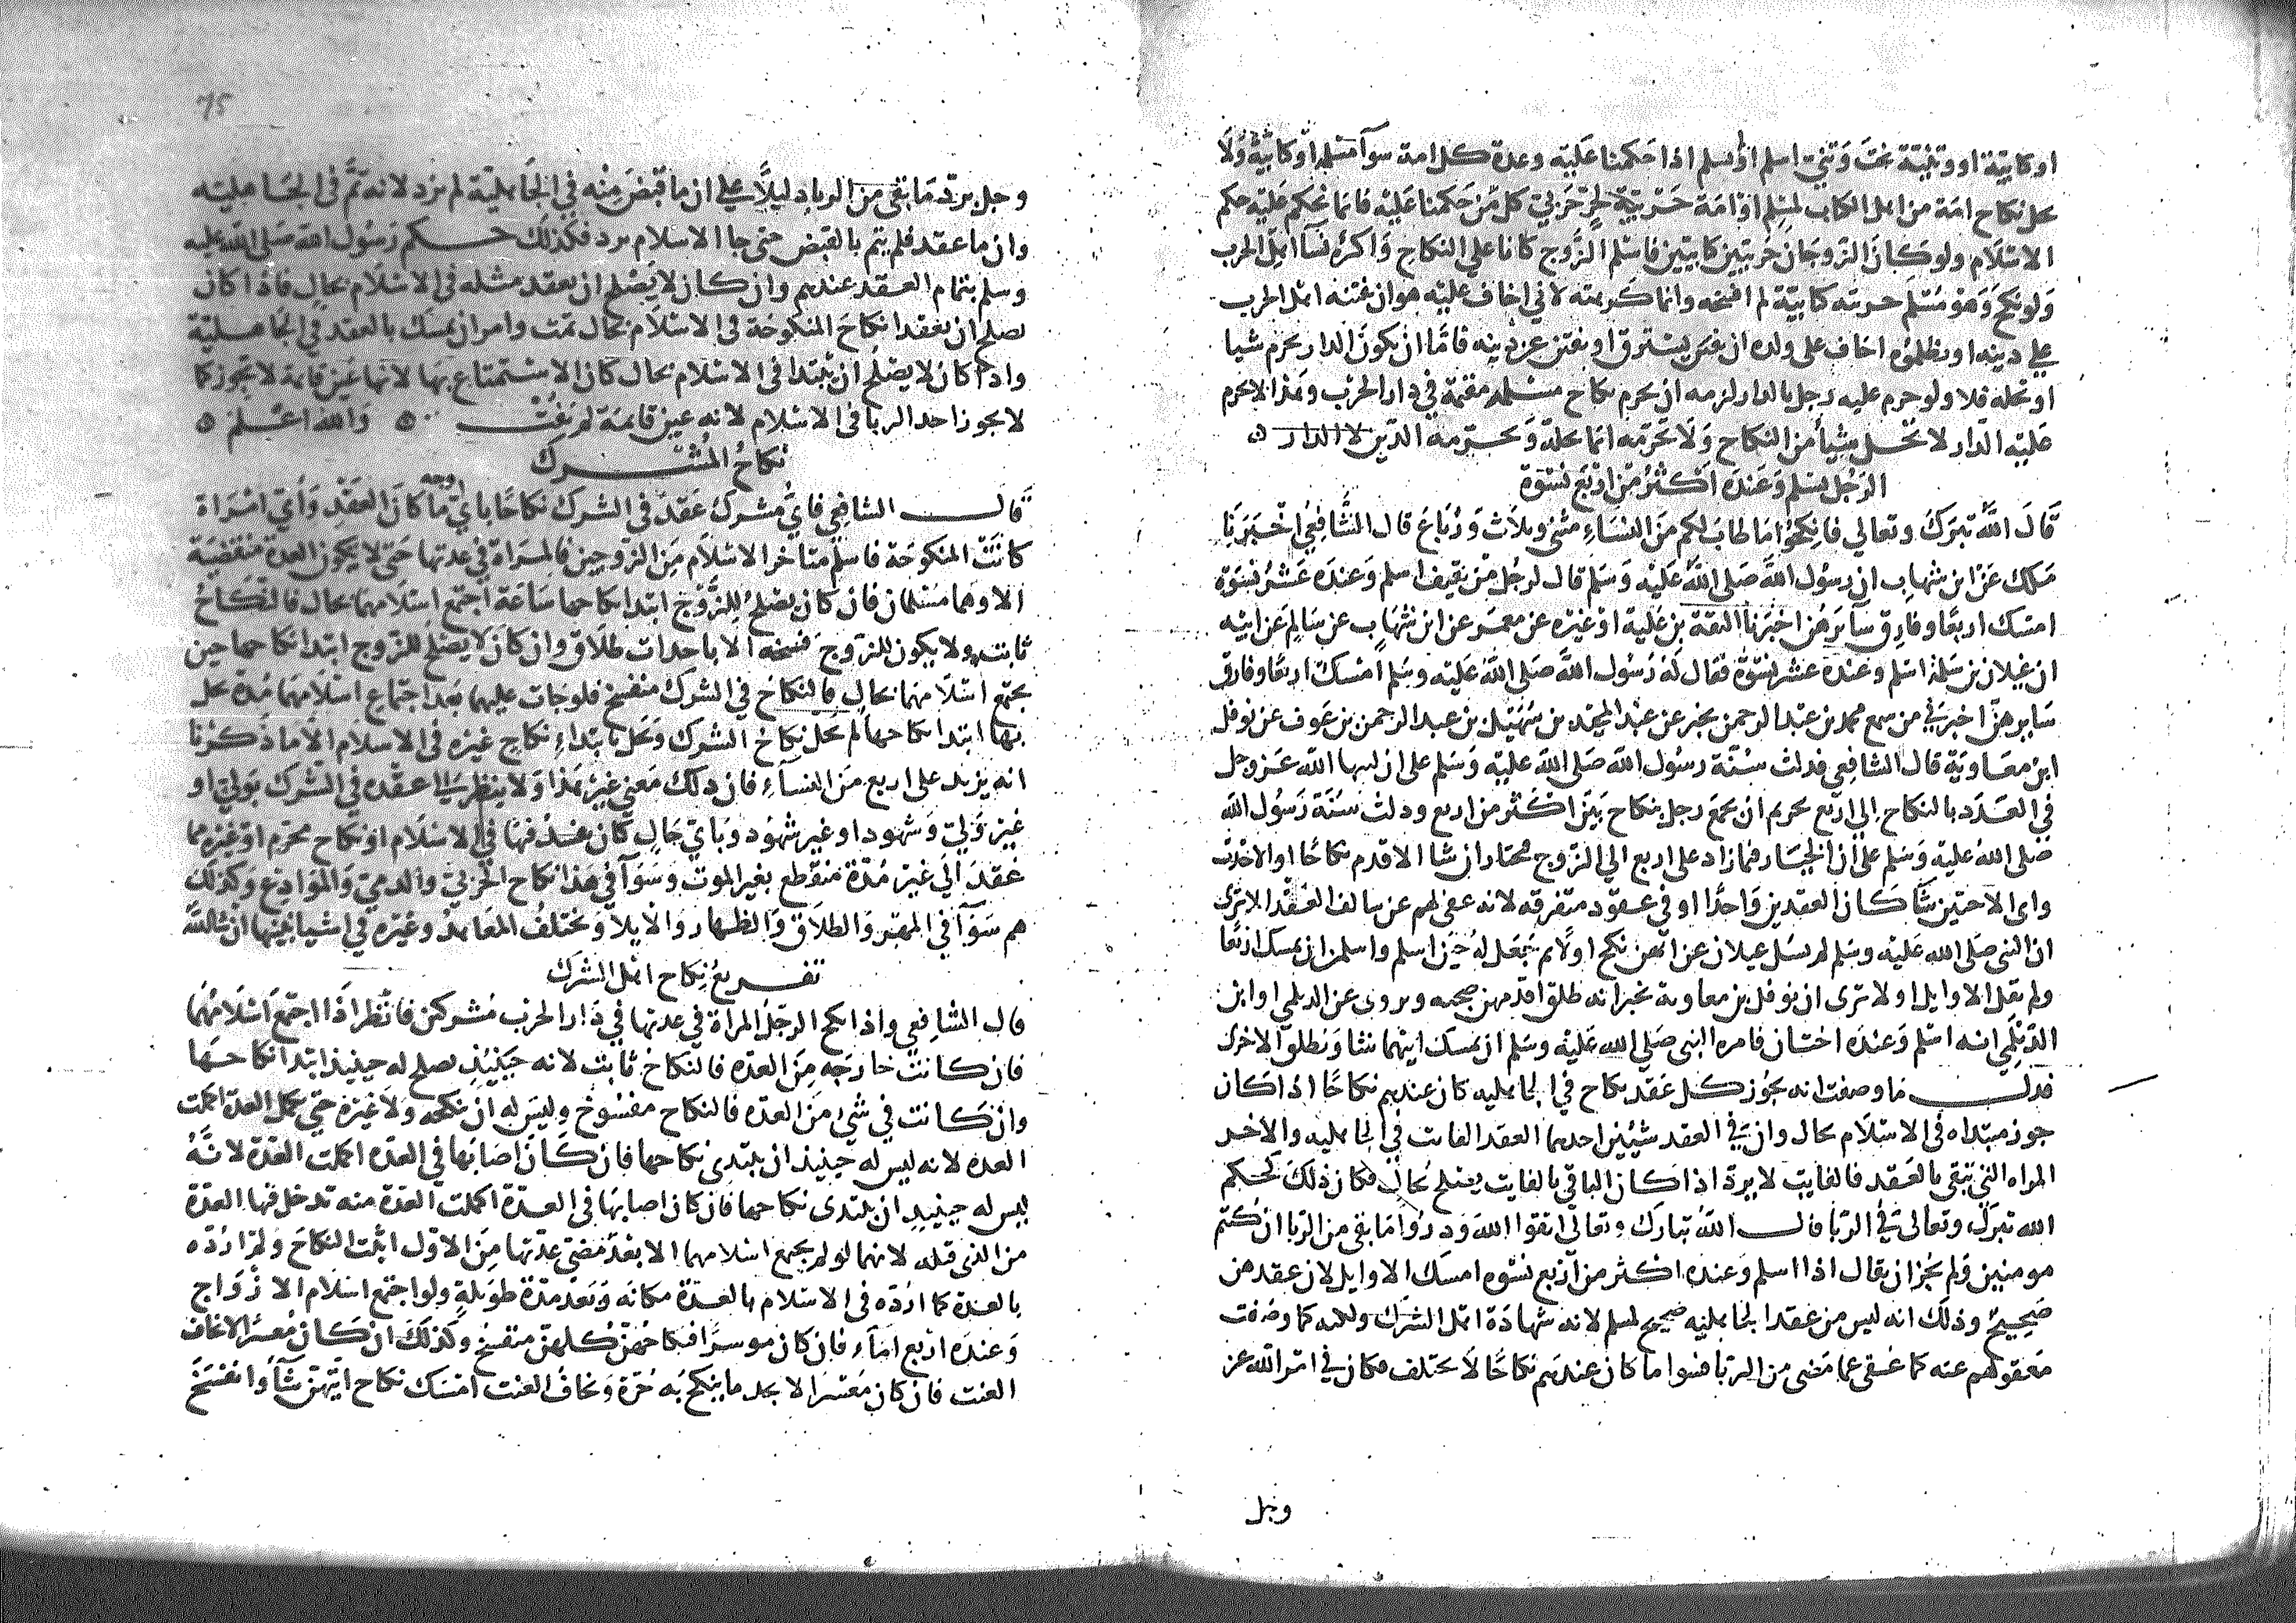 او كتابية او وثنية نكحت وثني اسلم او لم يسلم اذا حكمنا عليه وعدة كل امة سوآ مسلمة او كتابية ولا
يحل نكاح امة من اهل الكتاب لمسلم او امة حربية لحر حربي كل من حكمنا عليه فانما نحكم عليه حكم
الاسلام ولو كان الزوجان حربيين كتابيين فاسلم الزوج كانا على النكاح واكره نسآ اهل الحرب
ولو نكح وهو مسلم حربيه كتابية لم افسخه وانما كرهته لاني اخاف عليه هو ان يفتنه اهل الحرب
على دينه او يظلموه اخاف على ولده ان يسترق او يفتن عن دينه فاما ان يكون الدار يحرم شيا
او تحله فلا ولو حرم عليه رجل بالدار لزمه ان يحرم نكاح مسلمه مقيمة في دار الحرب وهذا لا يحرم
عليه الدار لا تحل شيأ من النكاح ولا تحرمه انما يحله ويحرمه الدين لا الدار ه
الرجل يسلم وعنده اكثر من اربع نسوة
قال الله تبرك وتعالى فانكحوا ما طاب لكم من النساء مثنى وثلاث ورباع قال الشافعي اخبرنا
ملك عن ابن شهاب ان رسول الله صلى الله عليه وسلم قال لرجل من ثقيف اسلم وعنده عشر نسوة
امسك اربعا وفارق سآيرهن اخبرنا الثقة بن علية او غيره عن معمر عن ابن شهاب عن سالم عن ابيه
ان غيلان بن سلمة اسلم وعنده عشر نسوة فقال له رسول الله صلى الله عليه وسلم امسك اربعا وفارق
سايرهن اخبرني من سمع محمد بن عبد الرحمن يخبر عن عبد المجيد بن سهيل بن عبد الرحمن بن عوف عن نوفل
ابن معاوية قال الشافعي فدلت سنة رسول الله صلى الله عليه وسلم على ان انتهى الله عز وجل
في العدد بالنكاح الى اربع تحريم ان يجمع رجل بنكاح بين اكثر من اربع ودلت سنة رسول الله
صلى الله عليه وسلم على ان الخيار فيما زاد على اربع الى الزوج يختار ان شا الاقدم نكاحا او الاحدث
واى الاختين شآ كان العقدين واحدا او في عقود متفرقه لانه عفى لهم عن سالف العقد الا ترى
ان النبي صلى الله عليه وسلم لم يسل غيلان عن ايهن نكح اولا ثم جعل له حين اسلم واسلمن ان يمسك اربعا
ولم يقل الاوايل اولا ترى ان نوفل بن معاوية يخبر انه طلق اقدمهن صحبه ويروى عن الديلمي او ابن
الديلمي انه اسلم وعنده اختان فامره النبي صلى الله عليه وسلم ان يمسك ايتهما شا ويطلق الاخرى
فدل ما وصفت انه يجوز كل عقد نكاح في الجاهليه كان عندهم نكاحا اذا كان
يجوز مبتداه في الاسلام بحال وان في العقد شيئين احدهما العقد الفايت في الجاهليه والاخر
المراه التي تبقى بالعقد فالفايت لا يرد اذا كان الباقي بالفايت يصلح بحال فكان ذلك كحكم
الله تبرك وتعالى في الربا قال الله تبارك وتعالى اتقوا الله وذروا ما بقي من الربا ان كنتم
مومنين ولم يجز ان يقال اذا اسلم وعنده اكثر من اربع نسوه امسك الاوايل لان عقدهن
صحيح وذلك انه ليس من عقد الجاهليه صحيح لمسلم لانه شهادة اهل الشرك ولكنه كما وصفت
معفو لهم عنه كما عفي عما مضى من الربا فسوا ما كان عندهم نكاحا لا يختلف فكان في امر الله عز
وجل
75
وجل برد ما بقي من الربا دليلا على ان ما قبض منه في الجاهلية لم يرد لانه تم في الجاهلية
وان ما عقد فلم يتم بالقبض حتى جا الاسلام يرد فكذلك حكم رسول الله صلى الله عليه
وسلم بتمام العقد عندهم وان كان لا يصلح ان يعقد مثله في الاسلام بحال فاذا كان
يصلح ان يعقد انكاح المنكوحة في الاسلام بحال تمت وامر ان يمسك بالعقد في الجاهلية
واذا كان لا يصلح ان يبتدا في الاسلام بحال كان الاستمتاع بها لانها عين قايمة لا تجوز كما
لا يجوز اخذ الربا في الاسلام لانه عين قايمة لم تفت ه والله اعلم ه
نكاح المشرك
قال الشافعي فاي مشرك عقد في الشرك نكاحا باي وجه ما كان العقد واي امراة
كانت المنكوحة فاسلم متاخر الاسلام من الزوجين فالمراة في عدتها حتى لا يكون العدة منقضية
الا وهما مسلمان فان كان يصلح للزوج ابتدا نكاحها ساعة اجتمع اسلامهما بحال فالنكاح
ثابت ولا يكون للزوج فسخه الا باحداث طلاق وان كان لا يصلح للزوج ابتدا نكاحها حين
يجتمع اسلامهما بحال فالنكاح في الشرك منفسخ فلو جات عليهما بعد اجتماع اسلامهما مدة يحل
بها ابتدا نكاحها لم يحل نكاح الشرك ويحل بابتداء نكاح غيره في الاسلام الا ما ذكرنا
انه يزيد على اربع من النسآء فان ذلك معنى غير هذا ولا ينظر الى عقده في الشرك بولي او
غير ولي وشهود او غير شهود وباي حال كان يفسد فيها في الاسلام او نكاح محرم او غيره مما
عقد الى غير مدة منقطع بغير الموت وسوآ في هذا نكاح الحربي والذمي والموادع وكذلك
هم سوآ في المهر والطلاق والظهار والايلا ويختلف المعاهد وغيره في اشيا نبينها ان شا الله
تفريع نكاح اهل الشرك
قال الشافعي واذا نكح الرجل المراة في عدتها في دار الحرب مشركين فانظر اذا اجتمع اسلامهما
فان كانت خارجه من العده فالنكاح ثابت لانه حينيذ يصلح له حينيذ ابتدا نكاحها
وان كانت في شئ من العده فالنكاح مفسوخ وليس له ان ينكحه ولا غيره حتى تكمل العدة اكملت
العده لانه ليس له حينيذ ان يبتدى نكاحها فان كان اصابها في العده اكملت العدة لانه
ليس له حينيذ ان يبتدى نكاحها فان كان اصابها في العدة اكملت العدة منه تدخل فيها العدة
من الذي قبله لانهما لو لم يجتمع اسلامهما الا بعد مضي عدتها من الاول اثبت النكاح ولم ارده
بالعدة كما ارده في الاسلام بالعدة مكانه وبعد مدة طويلة ولو اجتمع اسلام الازواج
وعنده اربع امآء فان كان موسرا فنكاحهن كلهن منفسخ وكذلك ان كان معسرا لا يخاف
العنت فان كان معسرا لا يجد ما ينكح به حرة ويخاف العنت امسك نكاح ايتهن شآ وانفسخ